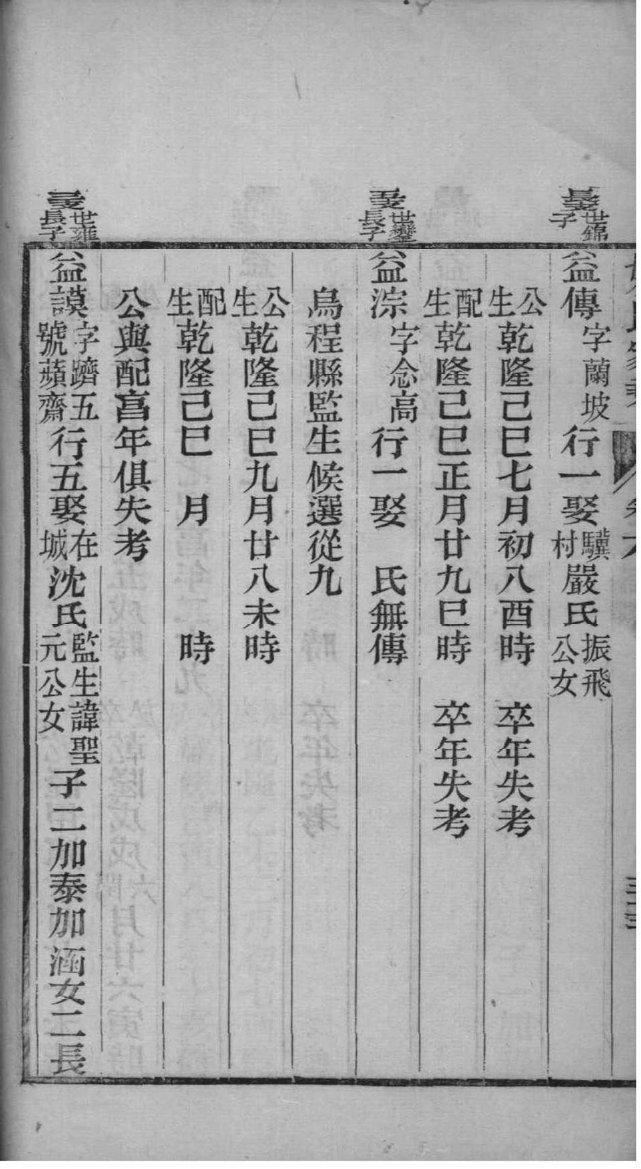 世錦長子
益傳字蘭坡行一娶驥村嚴氏振飛公女
公生乾隆己巳七月初八酉時 卒年失考
配生乾隆己巳正月廿九巳時 卒年失考
長子
益淙字念高行一娶 氏無傳
烏程縣監生候選從九
公生乾隆己巳九月廿八未時
配生乾隆己巳 月 時
公與配亯年俱失考
世雍長子
益謨字躋五號蘋齋行五娶在城沈氏監生諱聖元公女子二加泰加涵女二長